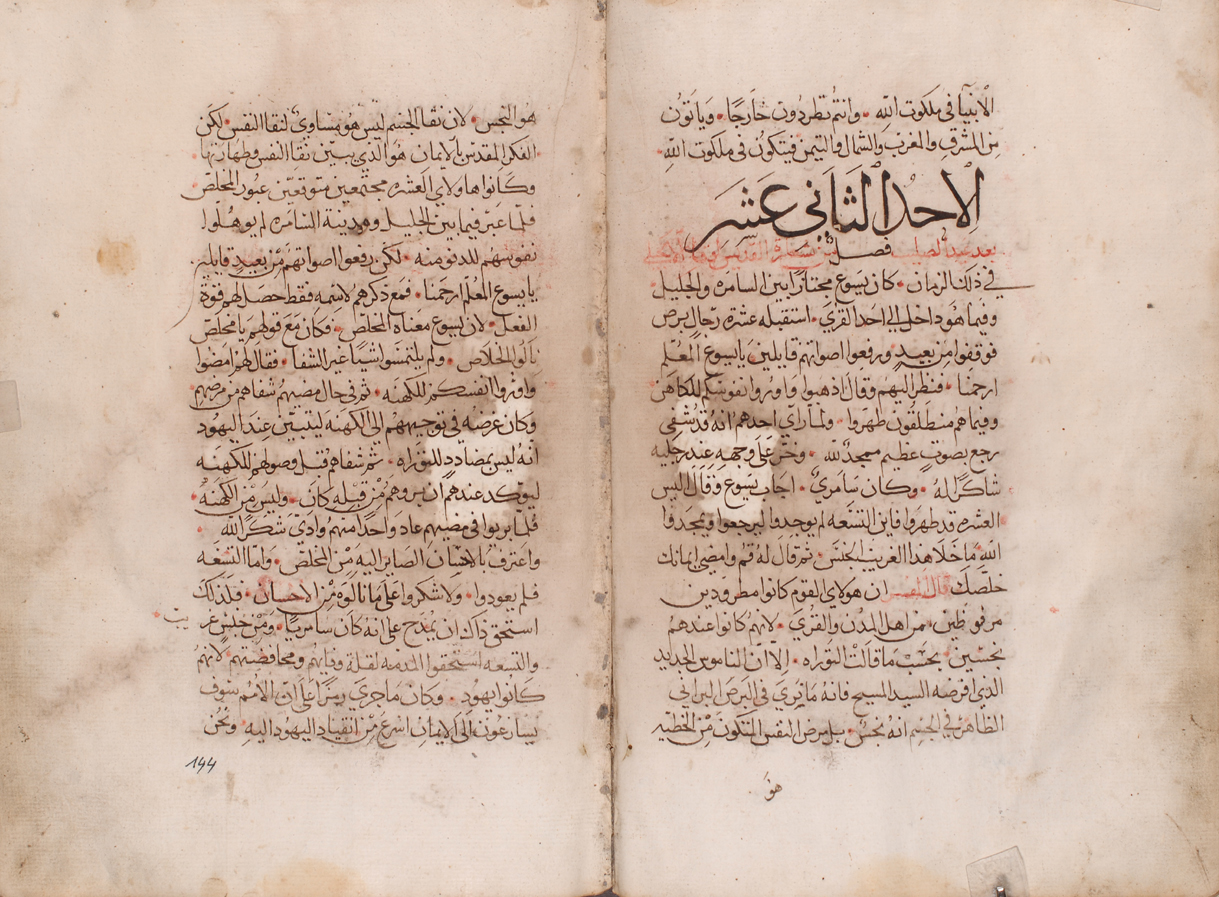 الانبيا في ملكوت الله • وانتم تطردون خارجًا • وياتون
من المشرق والمغرب والشمال والتيمن فيتكون في ملكوت الله •
الاحد الثاني عشر
بعد عيد الصليب فصل من بشارة القديس لوقا
في ذلك الزمان • كان يسوع مجتازًا بين السامره والجليل
وفيما هو داخل الى احد القرى • استقبله عشره رجال برص
فوقفوا من بعيد ورفعوا اصواتهم قايلين يا يسوع المعلم
ارحمنا • فنظر اليهم وقال اذهبوا واوروا نفوسكم للكاهن
وفيما هم منطلقون طهروا • ولما راي احدهم انه قد شفي
رجع بصوت عظيم يمجد لله • وخر على وجهه عند رجليه
شاكرًا له • وكان سامري • اجاب يسوع وقال اليس
العشره قد طهروا فاين التسعه لم يوجدوا ليرجعوا ويمجدوا
الله ما خلا هذا الغريب الجنس • ثم قال له قم وامضي ايمانك
خلصك قال المفسر ان هولاي القوم كانوا مطرودين
مرفوظين من اهل المدن والقري • لانهم كانوا عندهم
نجسين • بحسب ما قالت التوراه • الا ان الناموس الجديد
الذي افرضه السيد المسيح فانه ما يري في البرص البراني
الظاهر في الجسم انه نجس • بل مرض النفس المتكون من الخطيه
هو
هو النجس • لان نقا الجسم ليس هو مساوي لنقا النفس • لكن
الفكر المقدس بالايمان هو الذي يبين نقا النفس وطهارتها •
وكانوا هاولاي العشره مجتمعين متوقعين عبور المخلص
فلما عبر فيما بين الجليل ومدينة السامره لم يوهلوا
نفوسهم للدنو منه • لكن رفعوا اصواتهم من بعيد قايلين
يا يسوع المعلم ارحمنا • فمع ذكرهم لاسمه فقط حصل لهم قوة
الفعل • لان يسوع معناه المخلص • فكان مع قولهم يا مخلص
نالوا الخلاص • ولم يلتمسوا شيا غير الشفا • فقال لهم امضوا
واوروا انفسكم للكهنه • ثم في حال مضيهم شفاهم من مرضهم
وكان غرضه في توجيههم الى الكهنه ليتبين عند اليهود
انه ليس بمضادد للتوراه • ثم شفاهم قبل وصولهم للكهنه
ليوكد عندهم ان بروهم من قبله كان • وليس من الكهنه •
فلما بريوا في مضيهم عاد واحدًا منهم وادى شكر الله
واعترف بالاحسان الصاير اليه من المخلص • واما التسعه
فلم يعودوا • ولا شكروا على ما نالوه من الاحسان • فلذلك
استحق ذاك ان يمدح على انه كان سامريًا • ومن جنس غريب
والتسعه استحقوا المذمه لقلة وفاهم ومحافضتهم لانهم
كانوا يهود • وكان ما جرى رمزًا على ان الامم سوف
يسارعون الى الايمان اسرع من انقياد اليهود اليه • ونحن
144